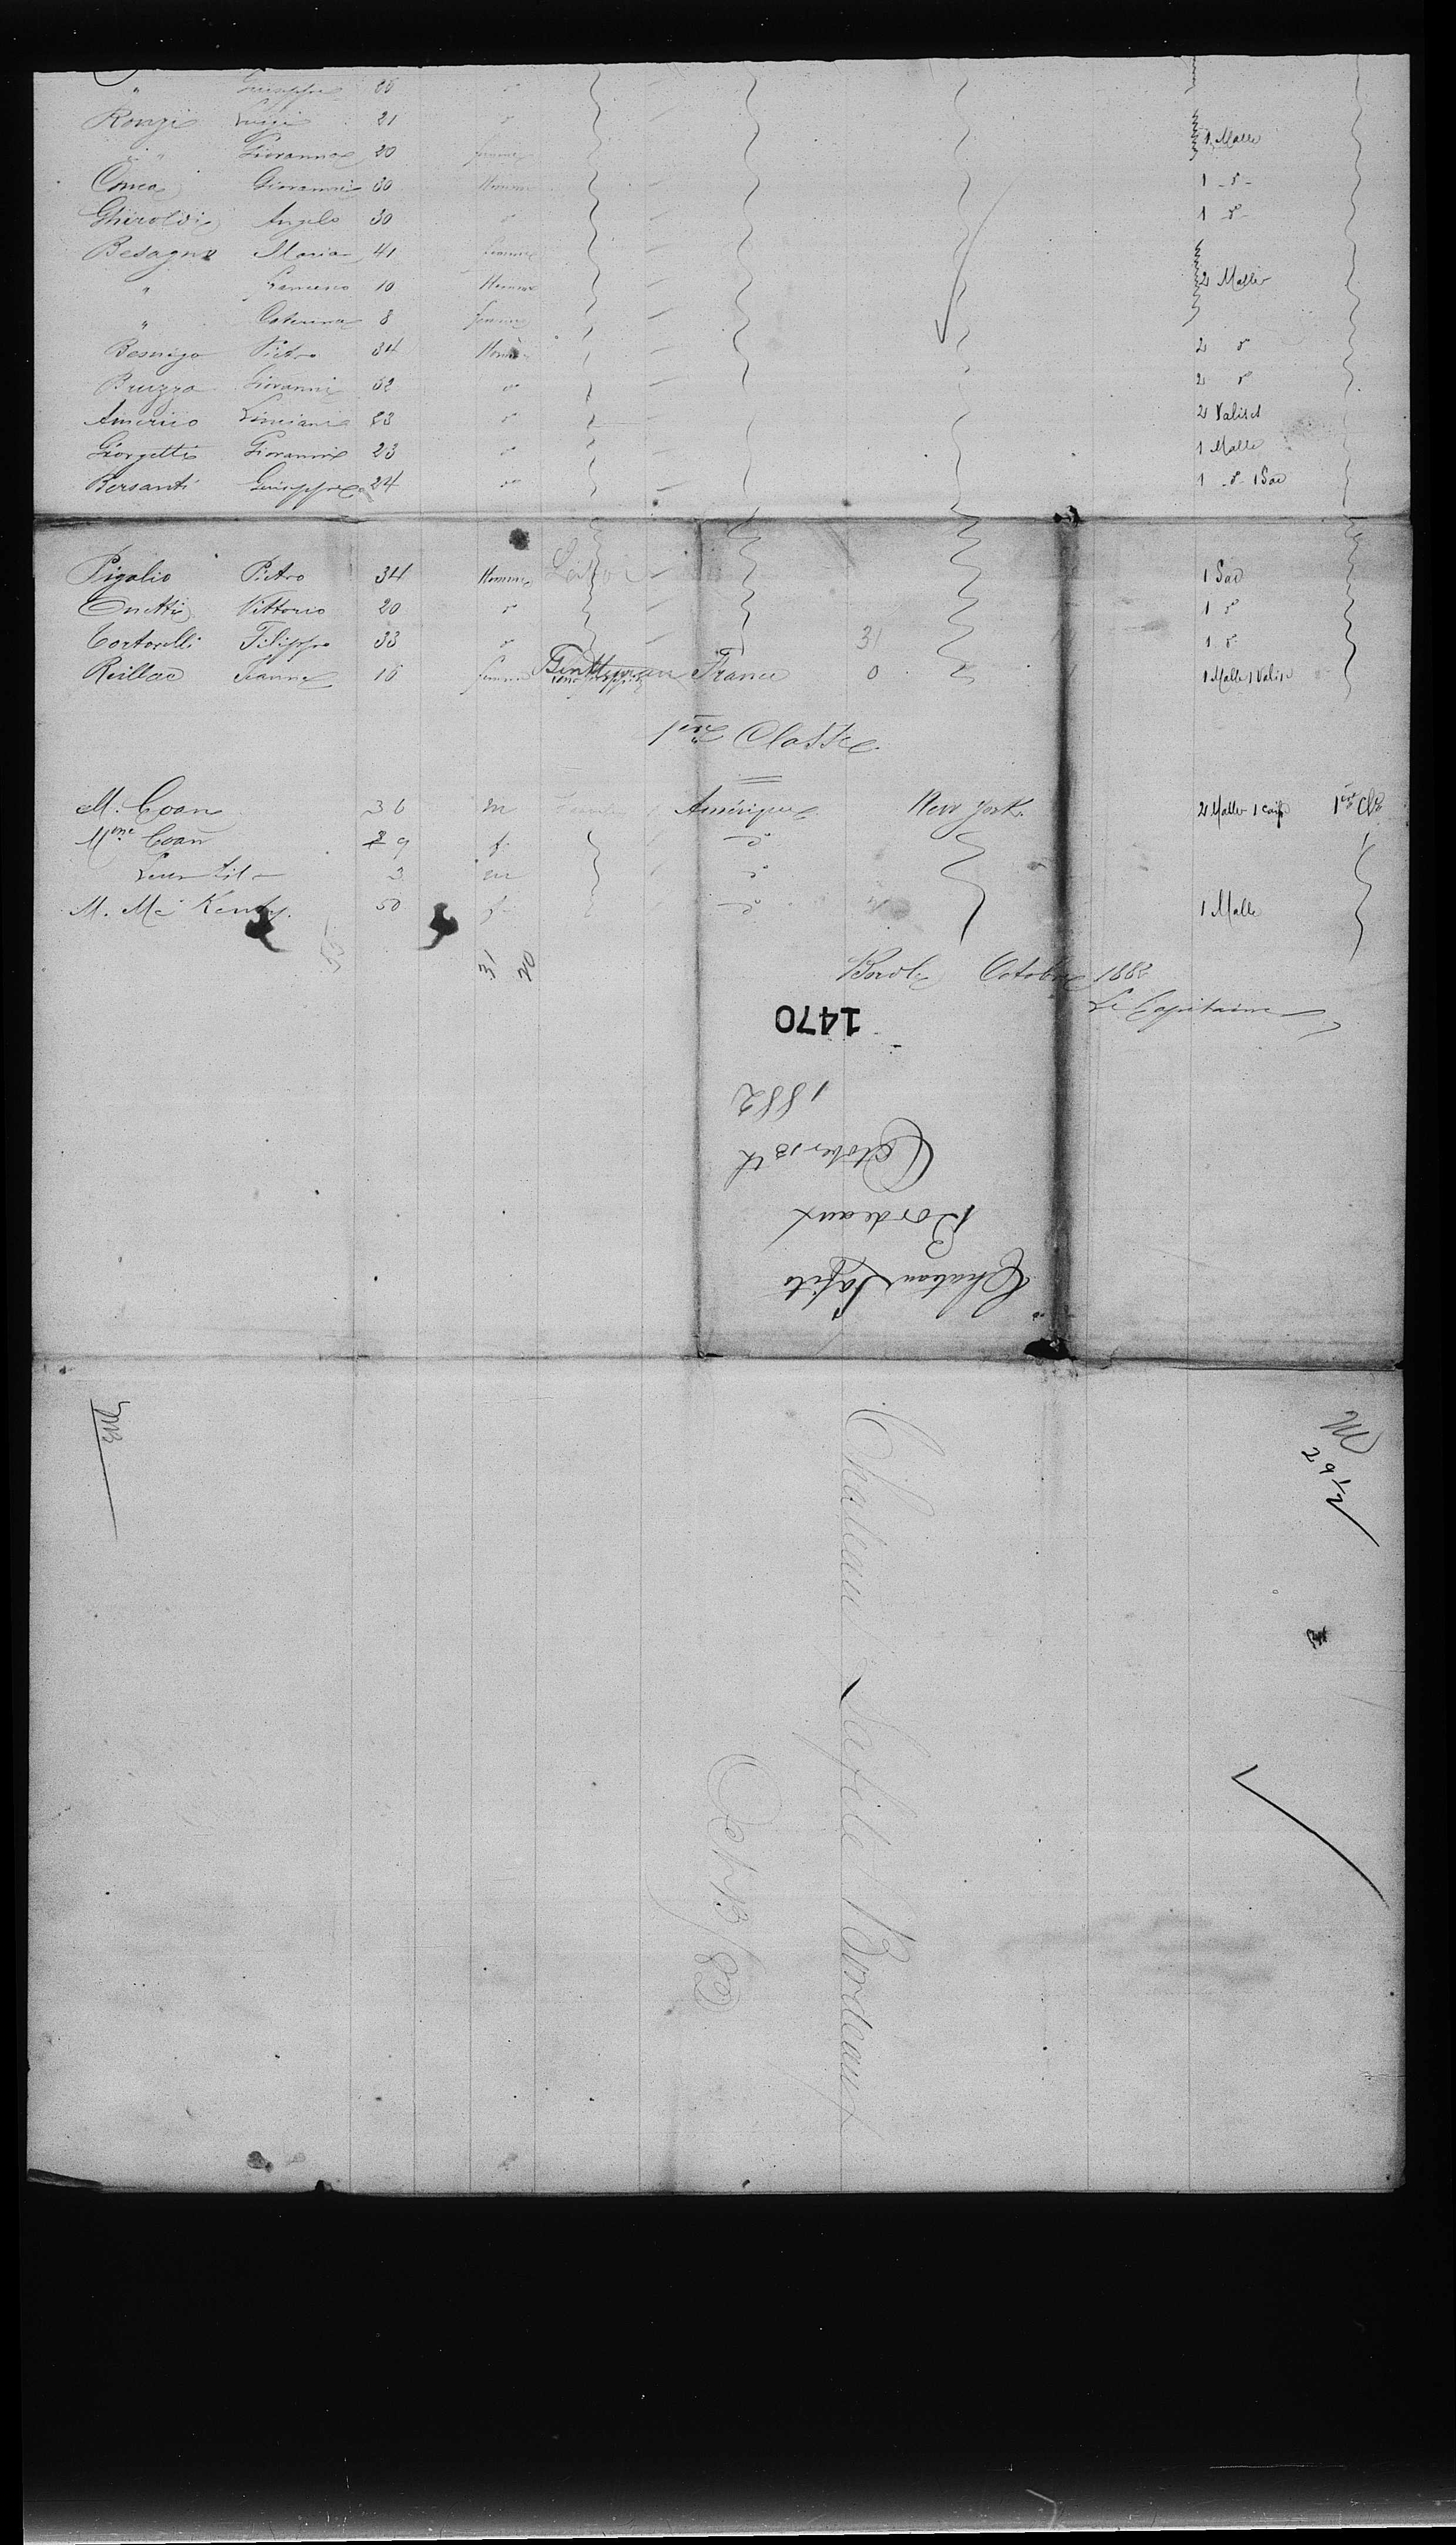 " Giuseppe 36
Ronzi Luigi 21 d° 1 Malle
" Giovanna 20 femme
Giovanni 30 Homme 1 d°
Ghiroldi Angelo 30 d° 1 d°
Besagno Maria 41 femme
" Francesco 10 Homme 2 Malles
" Caterina 8 femme
Besnigo Pietro 34 Homme 2 d°
Bruzzo Giovanni 32 d° 2 d°
Americo 23 d° 2 Valises
Giorgetti Giovanni 23 d° 1 Malle
Bersanti Giuseppe 24 d° 1 d° 1 Sac
Pigalio Pietro 34 Homme 1 Sac
Onetti Vittorio 20 d° 1 d°
Tortorelli Filippo 33 d° 31 1 d°
Reillac Jeanne 15 femme France 0 1 Malle 1 Valise
1ère Classe
M. Coan 36 m Amérique New York 2 Malles 1 caisse 1ère Cl
Mme Coan 29 f d°
Leur fils 3 m d°
M. Mc Kenty 50 f d° 1 Malle
31 20
Bord Octobre 1882
Le Capitaine
1470
Chateau Lafite
Bordeaux
October 13th
1882
Chateau Lafite Bordeaux
Oct 13/82
M